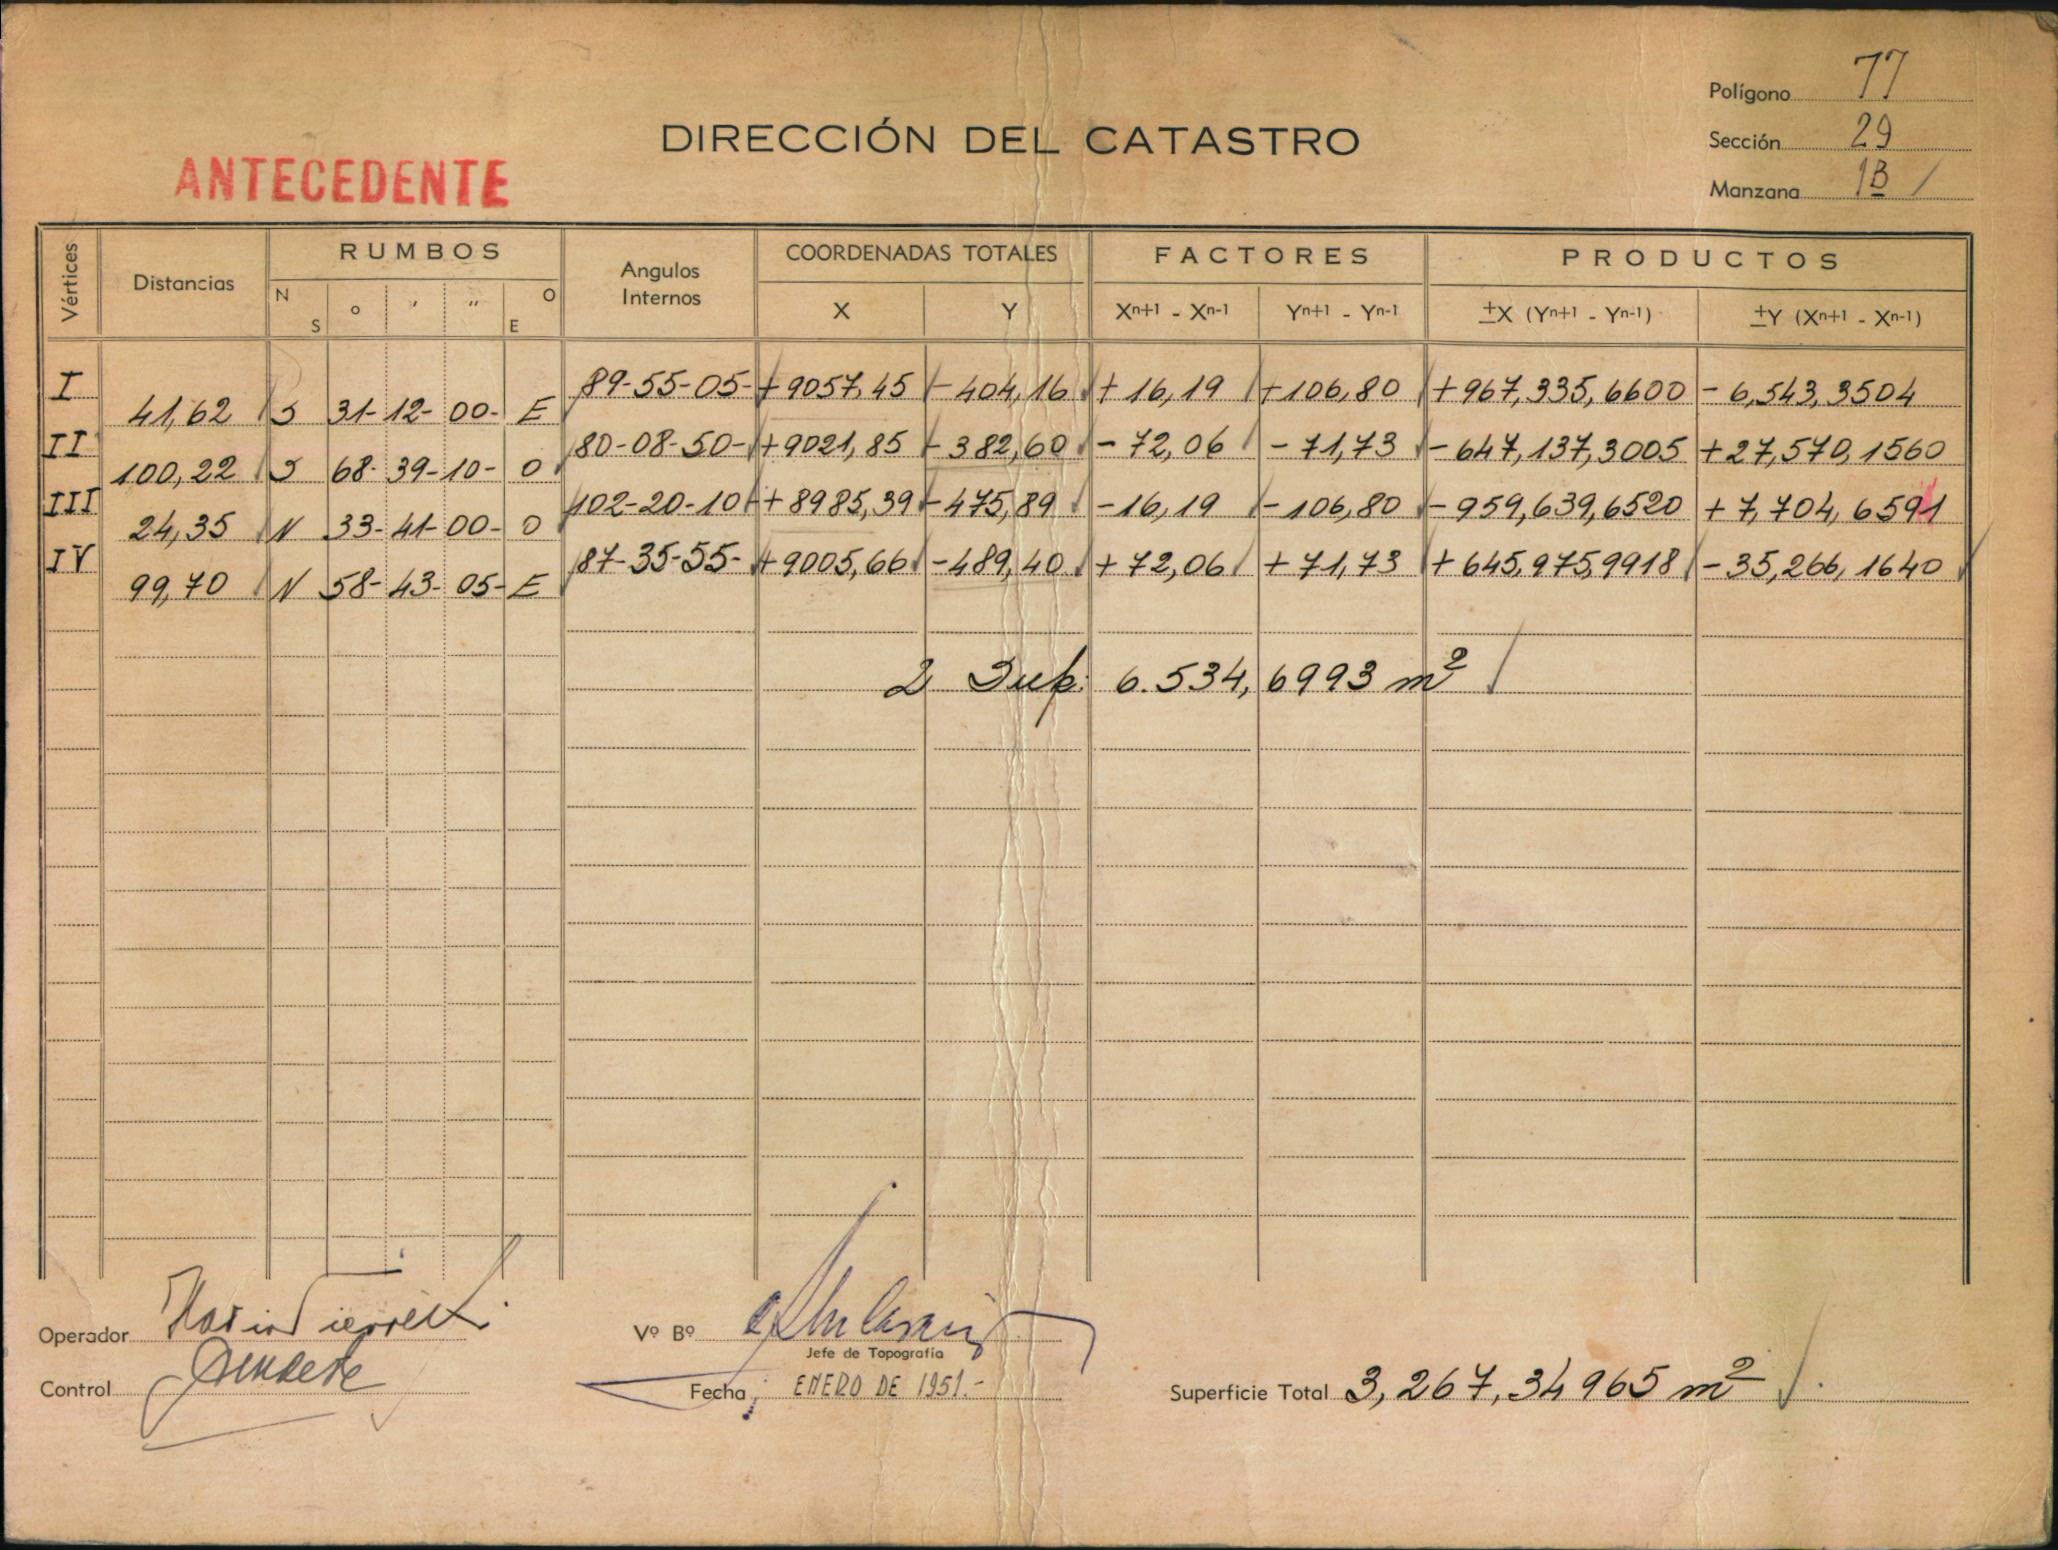 Polígono 77
DIRECCIÓN DEL CATASTRO
Sección 29
ANTECEDENTE
Manzana 1B /
Vértices Distancias RUMBOS Angulos Internos COORDENADAS TOTALES FACTORES PRODUCTOS
N S ° ' " O E X Y Xn+1 - Xn-1 Yn+1 - Yn-1 ±X (Yn+1 - Yn-1) ±Y (Xn+1 - Xn-1)
I 89-55-05- +9057,45 -404,16 +16,19 +106,80 +967,335,6600 -6,543,3504
41,62 S 31-12-00- E
II 80-08-50- +9021,85 -382,60 -72,06 -71,73 -647,137,3005 +27,570,1560
100,22 S 68-39-10- O
III 102-20-10 +8985,39 -475,89 -16,19 -106,80 -959,639,6520 +7,704,6591
24,35 N 33-41-00- O
IV 87-35-55- +9005,66 -489,40 +72,06 +71,73 +645,975,9918 -35,266,1640
99,70 N 58-43-05- E
2 Sup. 6.534,6993 m²
Operador
Vº Bº
Jefe de Topografía
Control
Fecha ENERO DE 1951.-
Superficie Total 3,267,34965 m²